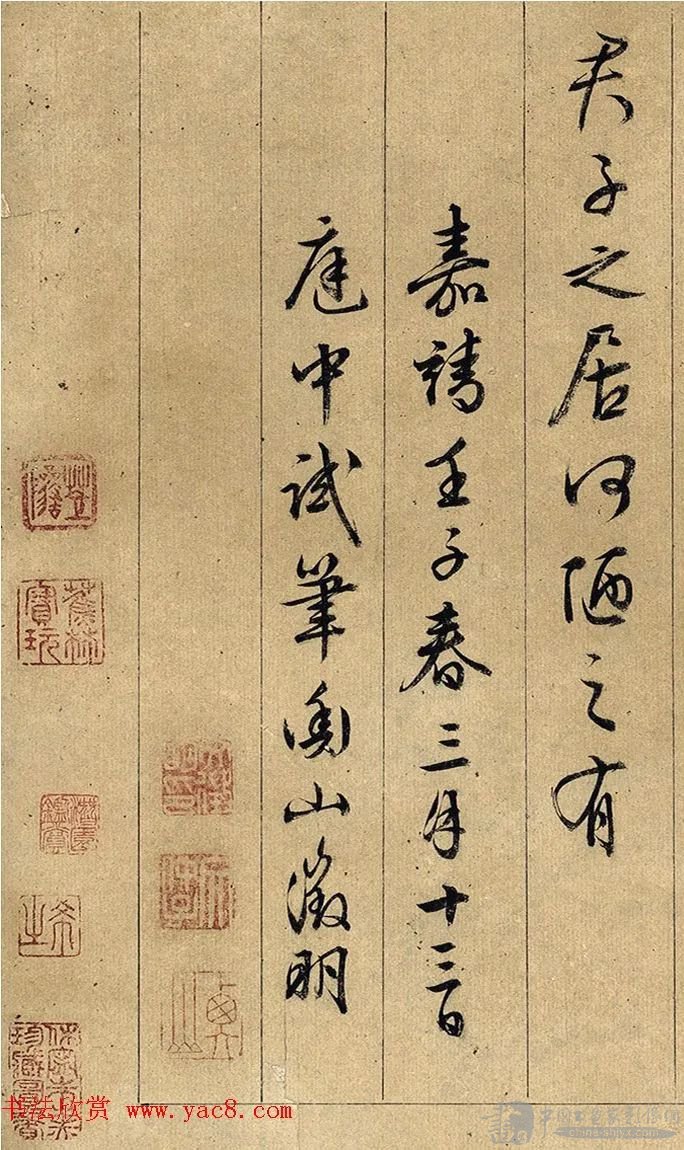 君子之居何陋之有
嘉靖壬子春三月十三日
庭中試筆衡山徵明
衡山
蕉林寶玩
书法欣赏 www.yac8.com